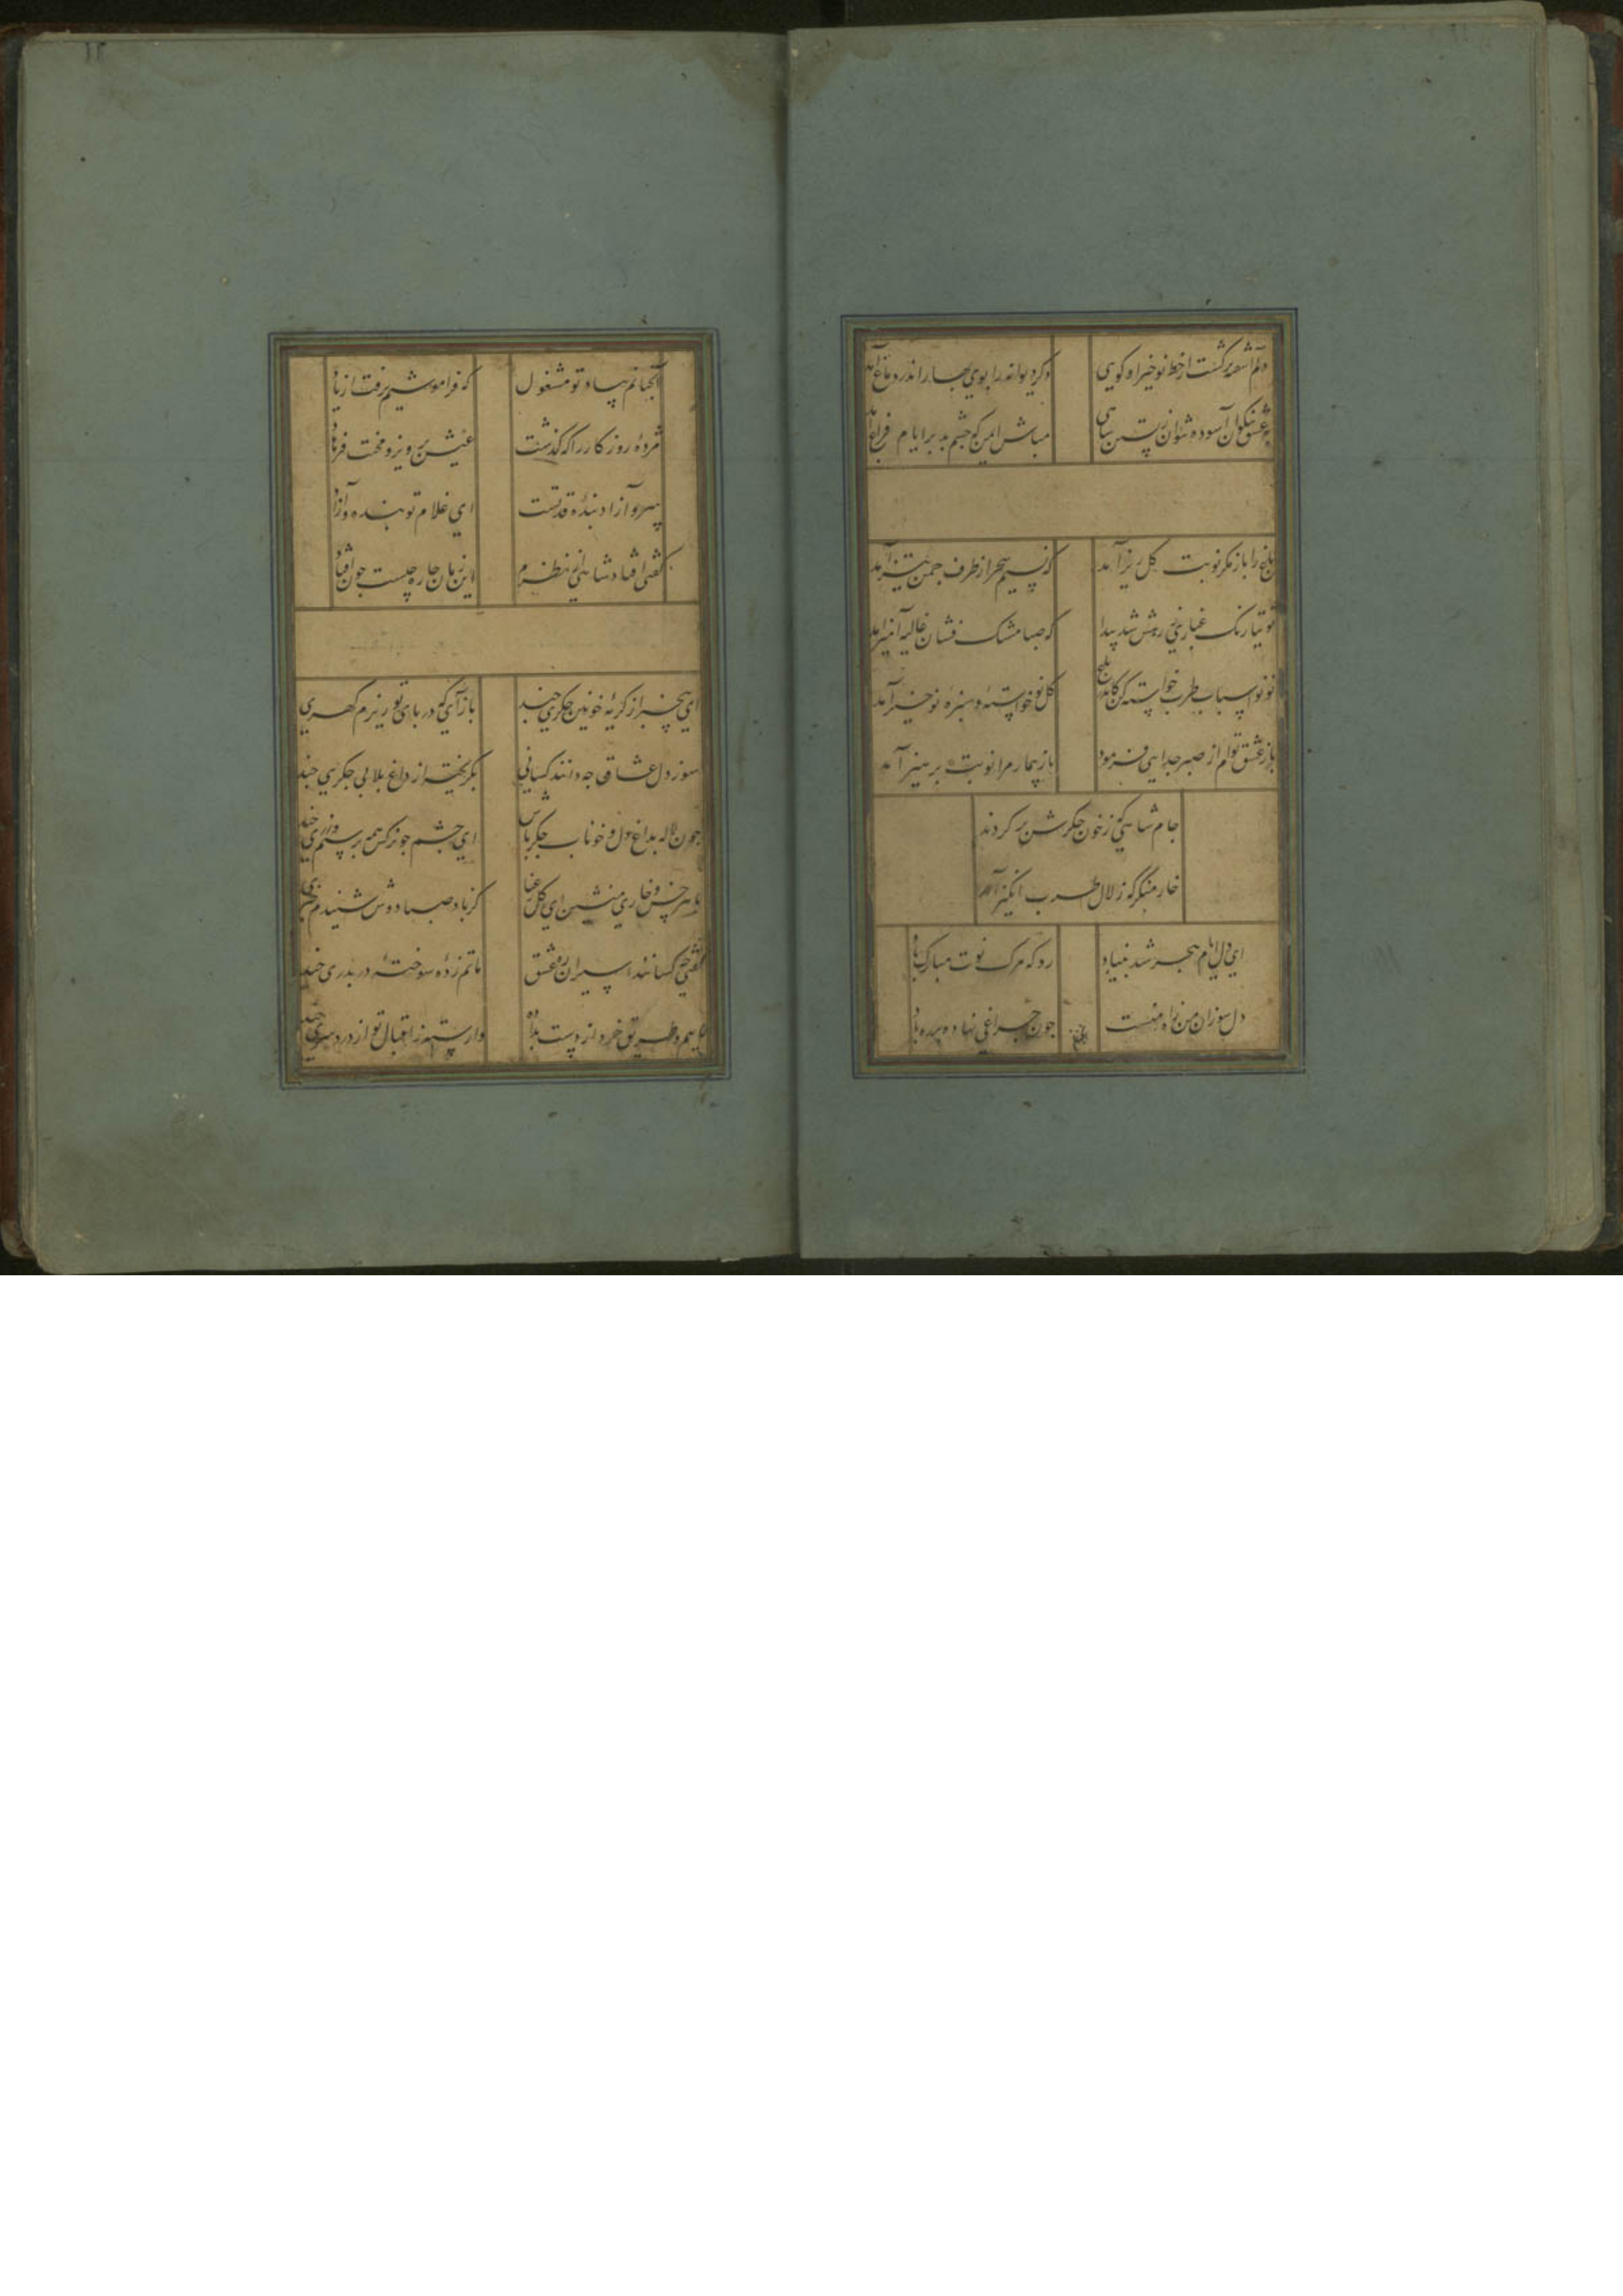 دلم آشفته‌تر گشت از خط نوخیز او گویی
دگر دیوانه را بوی بهار اندر دماغ آمد
ز عشق نیکوان آسوده نتوان زیستن شاهی
مباش ایمن که چشم بد بر ایام فراغ آمد
باغ را باز مگر نوبت گل ریز آمد
که نسیم سحر از طرف چمن تیز آمد
توتیا رنگ غباری ز رهش شد پیدا
که صبا مشک فشان غالیه آمیز آمد
نو نو اسباب طرب خواسته کن کاندر باغ
گل نو خواسته و سبزه نوخیز آمد
باز عشق توام از صبر جدایی فرمود
باز بیمار مرا نوبت پرهیز آمد
جام شاهی که ز خون جگرش پر کردند
خار منگر که زلال طرب انگیز آمد
ای دل ایام هجر شد بنیاد
رد که مرک نوت مبارک باد
دل سوزان من براه منست
چون چراغی نهاده بر ره باد
آنچنانم بیاد تو مشغول
که فراموشیم برفت از یاد
مزده روزکار را که گذشت
عیش پرویز و محنت فرهاد
سرو آزاد بنده قد تست
ای غلام تو بنده و آزاد
گفتی افتاد شاهی از نظرم
این زمان چاره چیست چون افتاد
ای بیخبر از گریه خونین جگری چند
بازآی که در پای تو ریزم گهری چند
سوز دل عشاق چه دانند کسانی
بگریخته از داغ بلا بی جگری چند
چون لاله بداغ دل و خوناب جگر باش
ای چشم چو نرگس همه بر سیم و زری چند
با هر خس و خاری منشین ای گل رعنا
کز باد صبا دوش شنیدم خبری چند
گفتی چه کسانند اسیران ره عشق
ماتم زده سوخته در بدری چند
ماییم و طریق خرد از دست بداده
وارسته ز اقبال تو از دردسری چند